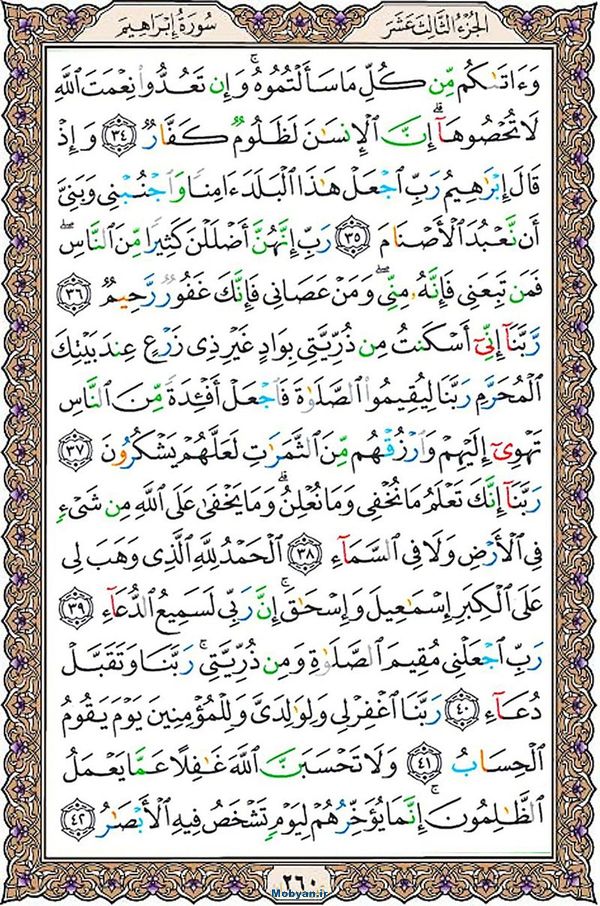 الجزء الثالث عشر
سورة إبراهيم
وَءَاتَىٰكُم مِّن كُلِّ مَا سَأَلْتُمُوهُ ۚ وَإِن تَعُدُّوا۟ نِعْمَتَ ٱللَّهِ
لَا تُحْصُوهَآ ۗ إِنَّ ٱلْإِنسَـٰنَ لَظَلُومٌ كَفَّارٌ ٣٤ وَإِذْ
قَالَ إِبْرَٰهِيمُ رَبِّ ٱجْعَلْ هَـٰذَا ٱلْبَلَدَ ءَامِنًا وَٱجْنُبْنِى وَبَنِىَّ
أَن نَّعْبُدَ ٱلْأَصْنَامَ ٣٥ رَبِّ إِنَّهُنَّ أَضْلَلْنَ كَثِيرًا مِّنَ ٱلنَّاسِ ۖ
فَمَن تَبِعَنِى فَإِنَّهُۥ مِنِّى ۖ وَمَنْ عَصَانِى فَإِنَّكَ غَفُورٌ رَّحِيمٌ ٣٦
رَّبَّنَآ إِنِّىٓ أَسْكَنتُ مِن ذُرِّيَّتِى بِوَادٍ غَيْرِ ذِى زَرْعٍ عِندَ بَيْتِكَ
ٱلْمُحَرَّمِ رَبَّنَا لِيُقِيمُوا۟ ٱلصَّلَوٰةَ فَٱجْعَلْ أَفْـِٔدَةً مِّنَ ٱلنَّاسِ
تَهْوِىٓ إِلَيْهِمْ وَٱرْزُقْهُم مِّنَ ٱلثَّمَرَٰتِ لَعَلَّهُمْ يَشْكُرُونَ ٣٧
رَبَّنَآ إِنَّكَ تَعْلَمُ مَا نُخْفِى وَمَا نُعْلِنُ ۗ وَمَا يَخْفَىٰ عَلَى ٱللَّهِ مِن شَىْءٍ
فِى ٱلْأَرْضِ وَلَا فِى ٱلسَّمَآءِ ٣٨ ٱلْحَمْدُ لِلَّهِ ٱلَّذِى وَهَبَ لِى
عَلَى ٱلْكِبَرِ إِسْمَـٰعِيلَ وَإِسْحَـٰقَ ۚ إِنَّ رَبِّى لَسَمِيعُ ٱلدُّعَآءِ ٣٩
رَبِّ ٱجْعَلْنِى مُقِيمَ ٱلصَّلَوٰةِ وَمِن ذُرِّيَّتِى ۚ رَبَّنَا وَتَقَبَّلْ
دُعَآءِ ٤٠ رَبَّنَا ٱغْفِرْ لِى وَلِوَٰلِدَىَّ وَلِلْمُؤْمِنِينَ يَوْمَ يَقُومُ
ٱلْحِسَابُ ٤١ وَلَا تَحْسَبَنَّ ٱللَّهَ غَـٰفِلًا عَمَّا يَعْمَلُ
ٱلظَّـٰلِمُونَ ۚ إِنَّمَا يُؤَخِّرُهُمْ لِيَوْمٍ تَشْخَصُ فِيهِ ٱلْأَبْصَـٰرُ ٤٢
٢٦٠
Mobyan.ir